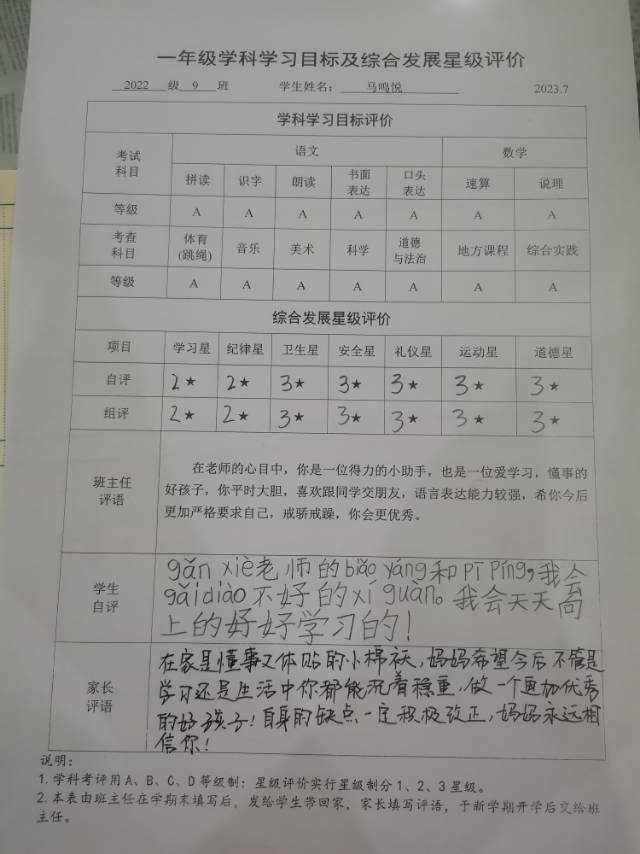 一年级学科学习目标及综合发展星级评价
2022 级 9 班 学生姓名： 马鸣悦 2023.7
学科学习目标评价
考试科目 语文 数学
拼读 识字 朗读 书面表达 口头表达 速算 说理
等级 A A A A A A A
考查科目 体育(跳绳) 音乐 美术 科学 道德与法治 地方课程 综合实践
等级 A A A A A A A
综合发展星级评价
项目 学习星 纪律星 卫生星 安全星 礼仪星 运动星 道德星
自评 2★ 2★ 3★ 3★ 3★ 3★ 3★
组评 2★ 2★ 3★ 3★ 3★ 3★ 3★
班主任评语
在老师的心目中，你是一位得力的小助手，也是一位爱学习，懂事的
好孩子，你平时大胆，喜欢跟同学交朋友，语言表达能力较强，希你今后
更加严格要求自己，戒骄戒躁，你会更优秀。
学生自评
gǎn xiè老师的biǎo yáng和pī píng，我会
gǎi diào不好的xí guàn。我会天天高
上的好好学习的！
家长评语
在家是懂事又体贴的小棉袄，妈妈希望今后不管是
学习还是生活中你都能沉着稳重，做一个更加优秀
的好孩子！自身的缺点一定积极改正，妈妈永远相
信你！
说明：
1.学科考评用A、B、C、D等级制；星级评价实行星级制分1、2、3星级。
2.本表由班主任在学期末填写后，发给学生带回家，家长填写评语，于新学期开学后交给班
主任。